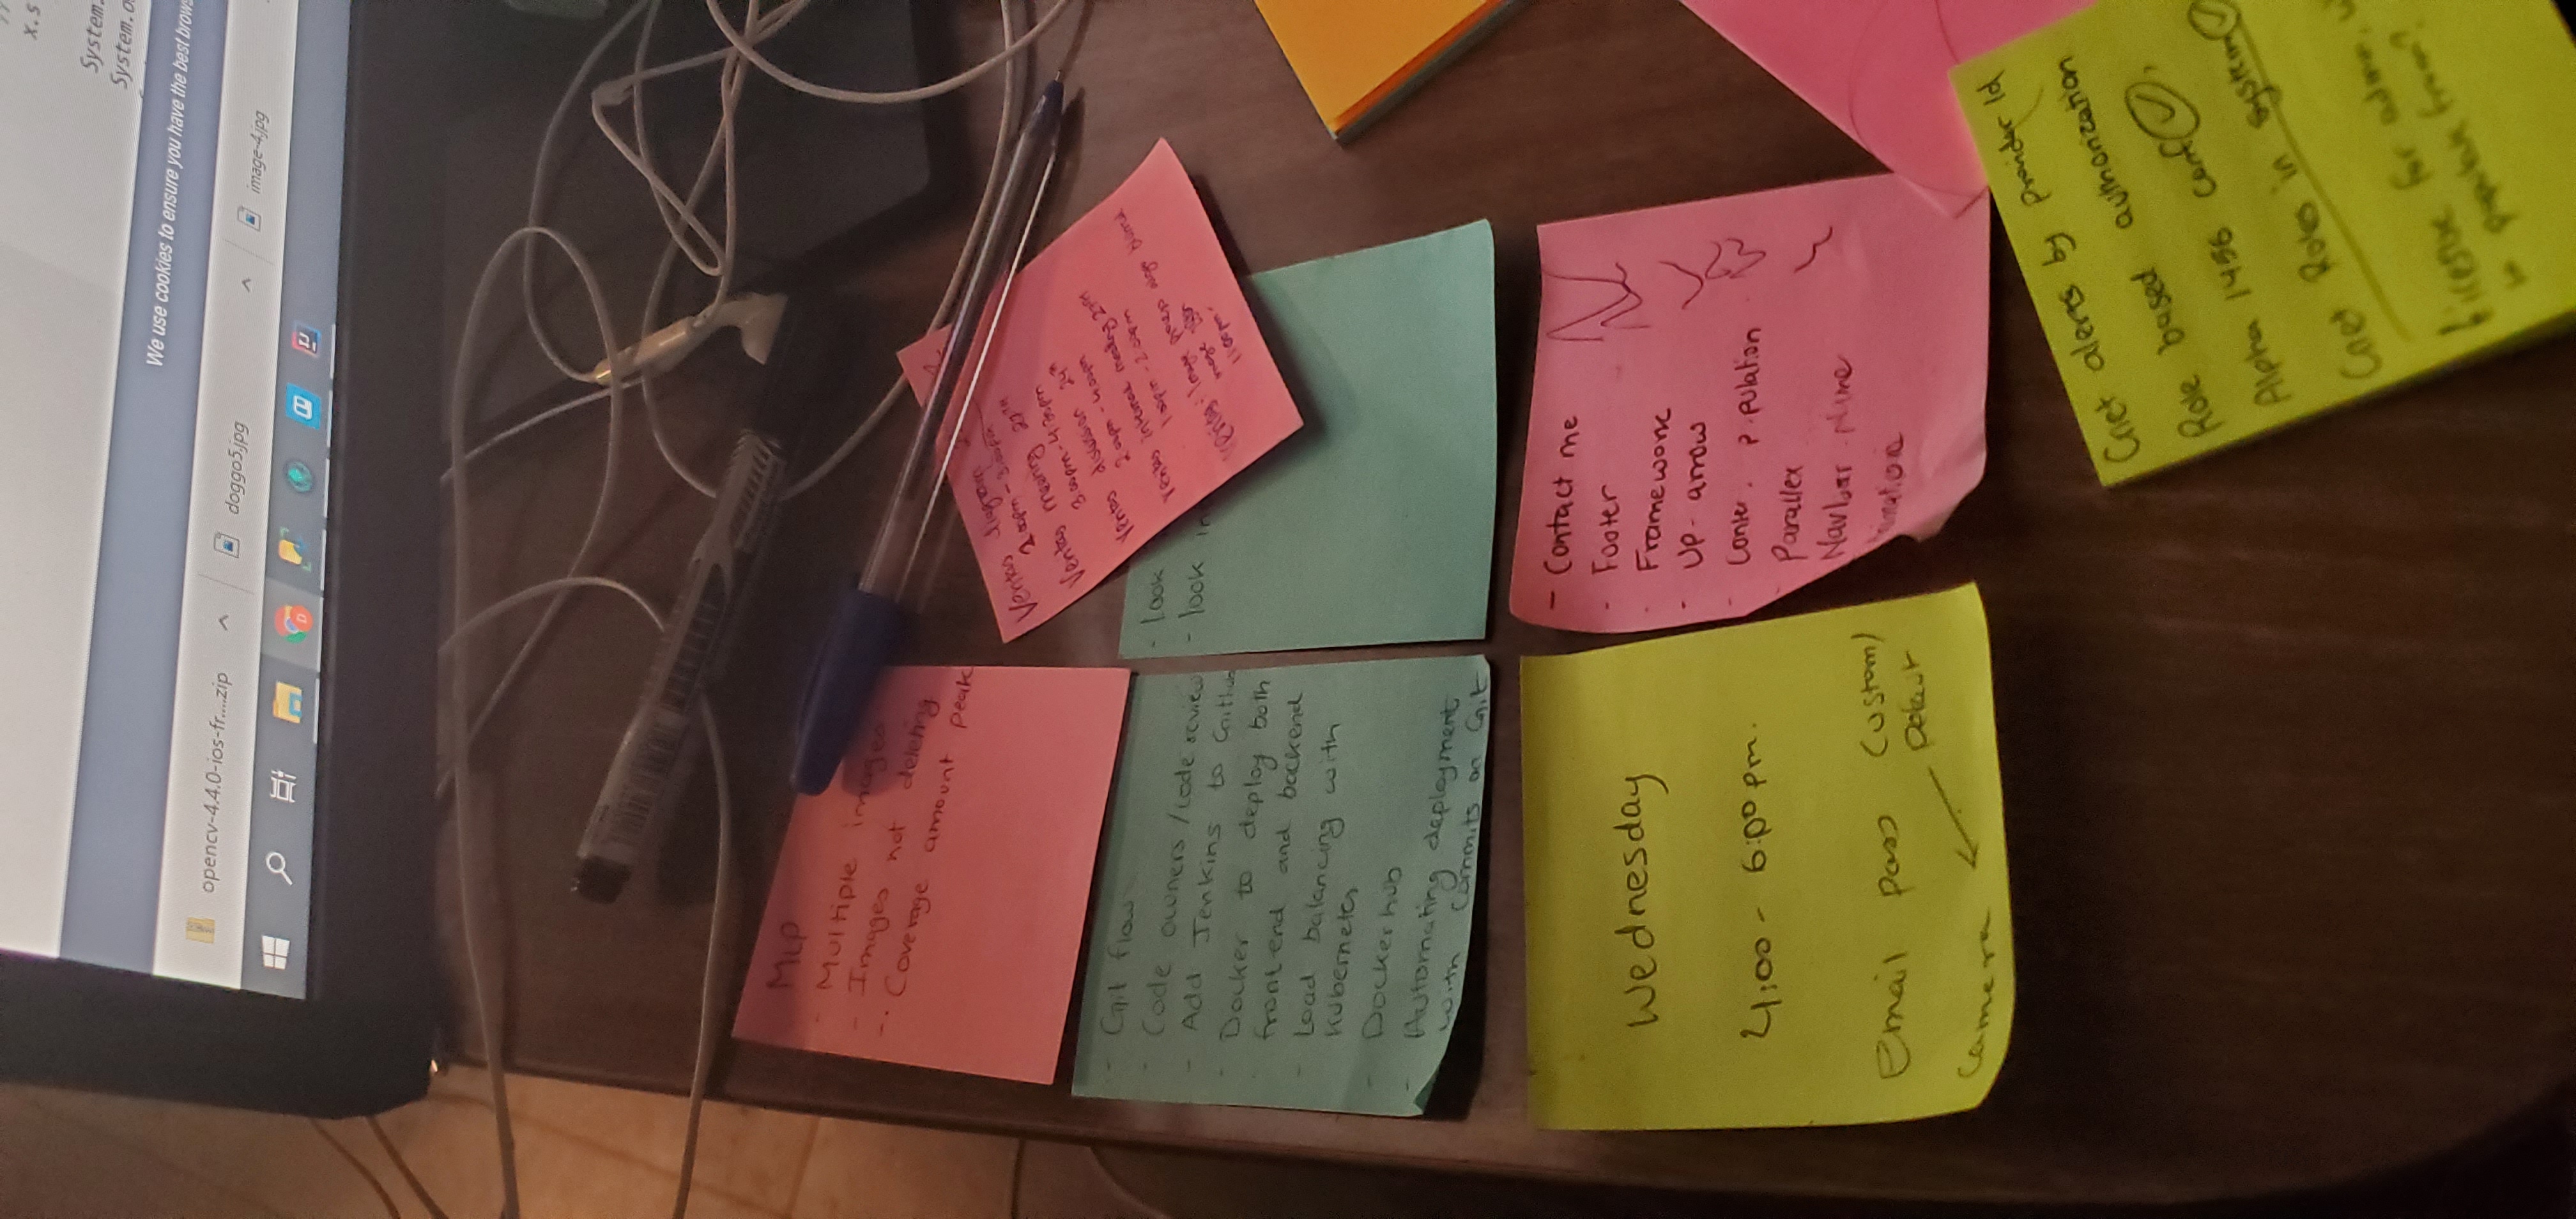 x.s
System.
System.o
We use cookies to ensure you have the best brows
opencv-4.4.0-ios-fr....zip
doggo5.jpg
image-4.jpg
MLP
- Multiple images
- Images not deleting
- Coverage amount peak
Ventas diagram
2:00pm - 3:00pm
Ventas meeting 27TH
3:00pm-4:30pm
Ventas discussion 24th
2:00pm - 4:00pm
Ventas internal meeting 27TH
1:00pm - 2:00pm
Image process blurred
image
11:00pm-
- Git flow
- Code owners/code review
- Add Jenkins to GitHub
- Docker to deploy both
frontend and backend
- Load balancing with
Kubernetes
- Dockerhub
- Automating deployment
with commits on Git
- look
- look in
Wednesday
4:00 - 6:00 pm.
Email pass Custom/
Default
Camera
- Contact me
- Footer
- Framework
- Up-arrow
- Conte. p.pulation
Parallex
Navbar Name
Get alerts by provider Id
Role based authorization
Alpha 1456 conf
Get Roles in system
License for admin,
to populate from?